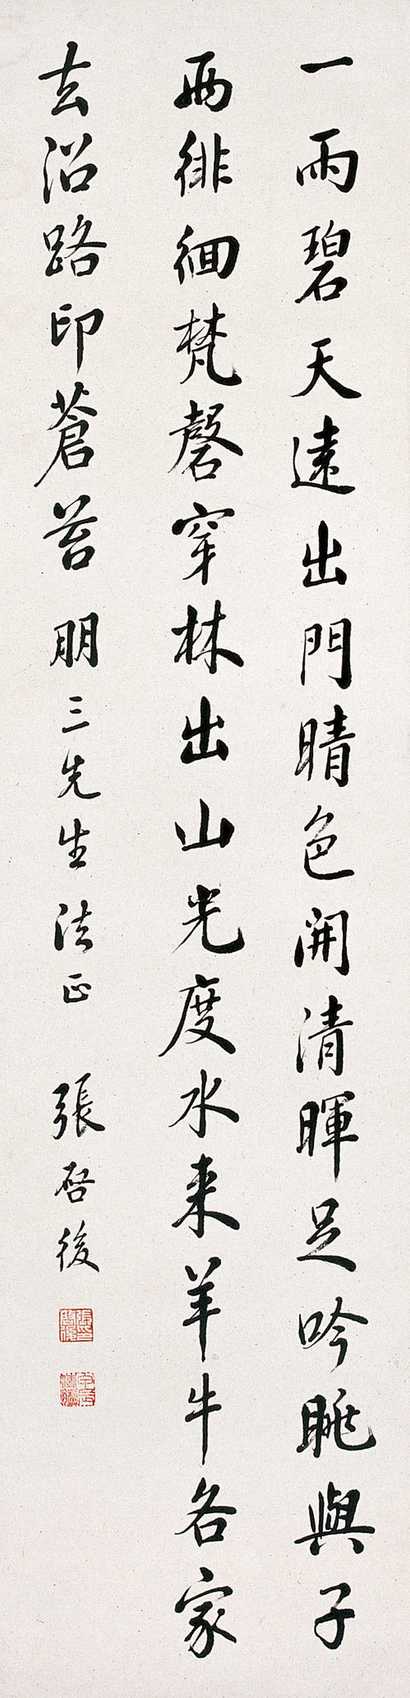 一雨碧天遠出門晴色開清暉足吟眺與子
西徘徊梵磬穿林出山光度水来羊牛各家
去沿路印蒼苔 朋三先生法正 張啓後